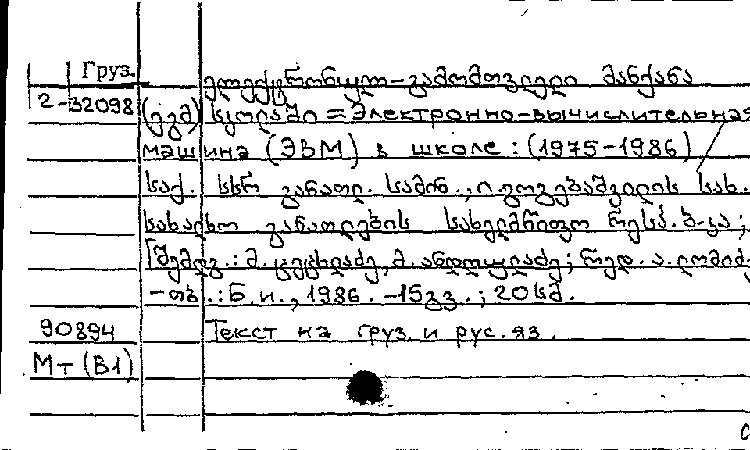 Груз. ელექტრონულ-გამომთვლელი მანქანა
2-32098 (ეგმ) სკოლაში = Электронно-вычислительная
машина (ЭВМ) в школе : (1975-1986) /
საქ. სსრ განათლ. სამინ., ი. გოგებაშვილის სახ.
სახალხო განათლების სახელმწიფო რესპ. ბ-კა ;
[შემდგ.: მ. კეცხაძე, მ. ანდღულაძე ; რედ. ა. ლომიძ
- თბ. : Б. и., 1986. - 15გვ. ; 20სმ.
90894 Текст на груз. и рус. яз.
Мт (В1)